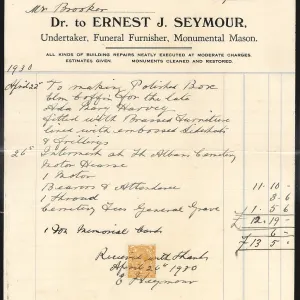 Mr. Brooker
Dr. to ERNEST J. SEYMOUR,
Undertaker, Funeral Furnisher, Monumental Mason.
ALL KINDS OF BUILDING REPAIRS NEATLY EXECUTED AT MODERATE CHARGES.
ESTIMATES GIVEN. MONUMENTS CLEANED AND RESTORED.
1930
April 22 To making Polished Box
Elm Coffin for the late
Ada Mary Harvey
fitted with Brassed Furniture
lined with embossed
& Frillings
26 Interment at St Albans Cemetery
Motor Hearse
1 Motor
Bearers & Attendance 11 - 10 -
1 Shroud 8 - 6
Cemetery Fees General Grave 1 5 6
£ 12 19 -
1 Doz Memorial Cards 6 -
£ 13 5 -
Received with thanks
April 26th 1930
E Seymour